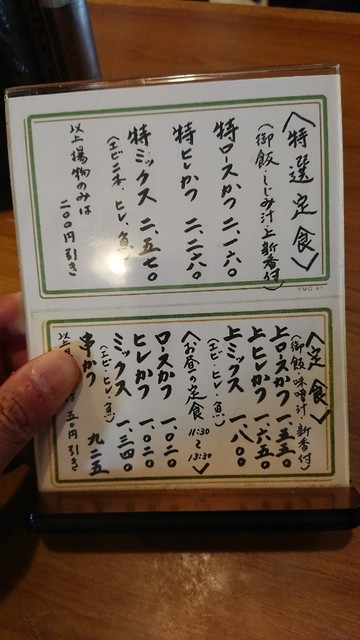 〈特選定食〉
(御飯・しじみ汁・上新香付)
特ロースかつ 二、一六〇
特ヒレかつ 二、二六〇
特ミックス 二、五七〇
(エビ二本、ヒレ、魚)
以上揚物のみは
二〇〇円引き
YMG 41
〈定食〉
(御飯・味噌汁・新香付)
上ロースかつ 一、五三〇
上ヒレかつ 一、六五〇
上ミックス 一、八〇〇
(エビ・ヒレ・魚)
〈お昼の定食 11:30~13:30〉
ロースかつ 一、〇二〇
ヒレかつ 一、〇二〇
ミックス 一、三四〇
(エビ・ヒレ・魚)
串かつ 九二五
以上
五〇円引き